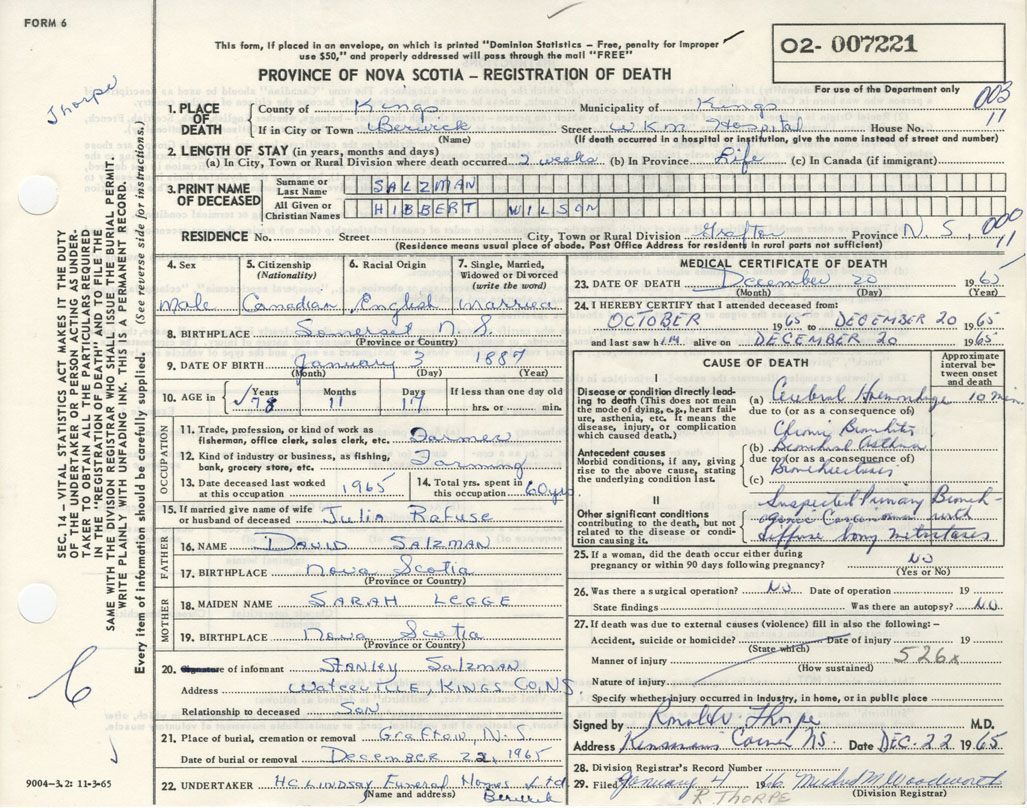 FORM 6
This form, if placed in an envelope, on which is printed "Dominion Statistics – Free, penalty for improper
use $50," and properly addressed will pass through the mail "FREE"
O2- 007221
PROVINCE OF NOVA SCOTIA – REGISTRATION OF DEATH
For use of the Department only
Thorpe
003
11
1. PLACE OF DEATH { County of Kings Municipality of Kings
If in City or Town Berwick Street WKM Hospital House No.
(Name) (If death occurred in a hospital or institution, give the name instead of street and number)
2. LENGTH OF STAY (in years, months and days)
(a) In City, Town or Rural Division where death occurred 2 weeks (b) In Province Life (c) In Canada (if immigrant)
3. PRINT NAME OF DECEASED
Surname or Last Name SALZMAN
All Given or Christian Names HIBBERT WILSON
000
11
RESIDENCE No. Street City, Town or Rural Division Grafton Province N. S.
(Residence means usual place of abode. Post Office Address for residents in rural parts not sufficient)
SEC. 14 – VITAL STATISTICS ACT MAKES IT THE DUTY
OF THE UNDERTAKER OR PERSON ACTING AS UNDER-
TAKER TO OBTAIN ALL THE PARTICULARS REQUIRED
IN THE "REGISTRATION OF DEATH" AND TO FILE THE
SAME WITH THE DIVISION REGISTRAR WHO SHALL ISSUE THE BURIAL PERMIT
WRITE PLAINLY WITH UNFADING INK. THIS IS A PERMANENT RECORD.
Every item of information should be carefully supplied. (See reverse side for instructions.)
4. Sex Male
5. Citizenship (Nationality) Canadian
6. Racial Origin English
7. Single, Married, Widowed or Divorced (write the word) Married
8. BIRTHPLACE Somerset N. S.
(Province or Country)
9. DATE OF BIRTH January 3 1887
(Month) (Day) (Year)
10. AGE in { Years 78 Months 11 Days 17 If less than one day old
hrs. or min.
OCCUPATION
11. Trade, profession or kind of work as
fisherman, office clerk, sales clerk, etc. Farmer
12. Kind of industry or business, as fishing,
bank, grocery store, etc. Farming
13. Date deceased last worked
at this occupation 1965
14. Total yrs. spent in
this occupation 60 yrs
15. If married give name of wife
or husband of deceased Julia Rafuse
FATHER
16. NAME DAVID SALZMAN
17. BIRTHPLACE Nova Scotia
(Province or Country)
MOTHER
18. MAIDEN NAME SARAH LEGGE
19. BIRTHPLACE Nova Scotia
(Province or Country)
20. Signature of informant STANLEY SALZMAN
Address WATERVILLE, KINGS CO, NS
Relationship to deceased Son
21. Place of burial, cremation or removal Grafton N. S.
Date of burial or removal December 22, 1965
9004-3.2: 11-3-65
22. UNDERTAKER HC LINDSAY Funeral Homes Ltd
(Name and address) Berwick
MEDICAL CERTIFICATE OF DEATH
23. DATE OF DEATH December 20 1965
(Month) (Day) (Year)
24. I HEREBY CERTIFY that I attended deceased from:
OCTOBER 1965 to DECEMBER 20 1965
and last saw him alive on DECEMBER 20 1965
CAUSE OF DEATH
Approximate
interval be-
tween onset
and death
I
Disease or condition directly lead-
ing to death (This does not mean
the mode of dying, e.g., heart fail-
ure, asthenia, etc. it means the
disease, injury, or complication
which caused death.)
(a) Cerebral Hemorrhage 10 min.
due to (or as a consequence of)
Chronic Bronchitis
Antecedent causes
Morbid conditions, if any, giving
rise to the above cause, stating
the underlying condition last.
(b) Bronchial Asthma
due to (or as a consequence of)
Bronchiectasis
(c)
II
Other significant conditions
contributing to the death, but not
related to the disease or condi-
tion causing it.
Suspected Primary Bronch-
ogenic Carcinoma with
diffuse bony metastases
25. If a woman, did the death occur either during
pregnancy or within 90 days following pregnancy? NO
(Yes or No)
26. Was there a surgical operation? NO Date of operation 19
State findings Was there an autopsy? NO
27. If death was due to external causes (violence) fill in also the following:–
Accident, suicide or homicide? Date of injury 19
(State which)
Manner of injury 526x
(How sustained)
Nature of injury
Specify whether injury occurred in industry, in home, or in public place
Signed by Ronald V. Thorpe M.D.
Address Kinsmans Corner NS Date DEC. 22 1965
28. Division Registrar's Record Number
29. Filed January 4 1966 Woodworth
R. THORPE (Division Registrar)